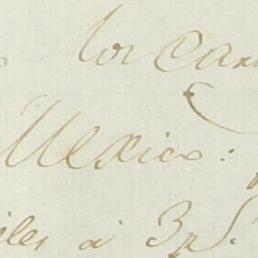 los Can
Mexico:
iles à 3 p S.